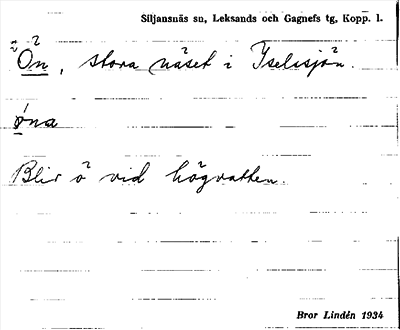 Siljansnäs sn, Leksands och Gagnefs tg, Kopp. l.
Ön, stora näset i Yselisjön.
øna
Blir ö vid högvatten.
Bror Lindén 1934